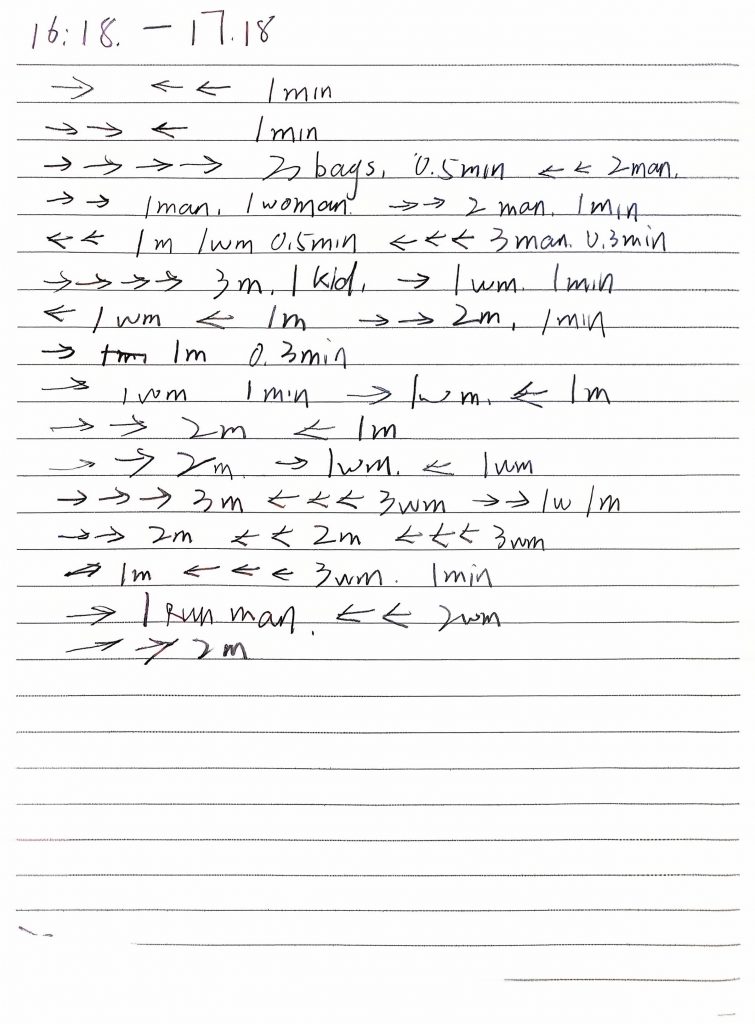 16:18. — 17.18
→ ← ← 1min
→ → ← 1min
→ → → → 2 bags, 0.5min ← ← 2man.
→ → 1man, 1woman. → → 2 man. 1min
← ← 1m 1wm 0.5min ← ← ← 3man. 0.3min
→ → → → 3m, 1 kid, → 1wm. 1min
← 1wm ← 1m → → 2m, 1min
→ 1m 0.3min
→ 1wom 1min → 1wm. ← 1m
→ → 2m ← 1m
→ → 2m. → 1wm. ← 1wm
→ → → 3m ← ← ← 3wm → → 1w 1m
→ → 2m ← ← 2m ← ← ← 3wm
→ 1m ← ← ← 3wm. 1min
→ 1 Run man. ← ← 2wm
→ → 2m